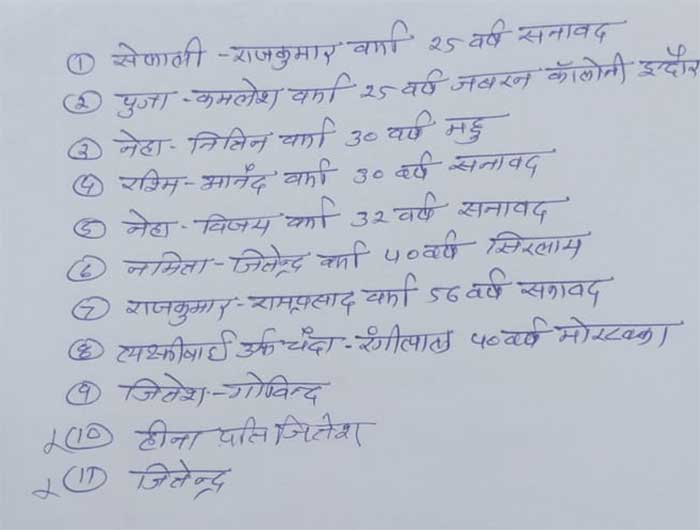 ① सेणाली - राजकुमार वर्मा २५ वर्ष सनावद
② पुजा - कमलेश वर्मा २५ वर्ष जबरन कॉलोनी इन्दौर
③ नेहा - नितिन वर्मा ३० वर्ष महु
④ रश्मि - आनंद वर्मा ३० वर्ष सनावद
⑤ नेहा - विजय वर्मा ३२ वर्ष सनावद
⑥ नमिता - जितेन्द्र वर्मा ५० वर्ष सिरलाय
⑦ राजकुमार - रामप्रसाद वर्मा ५६ वर्ष सनावद
⑧ उर्फ चंदा - रंगीलाल ५० वर्ष मोरटक्का
⑨ जितेश - गोविन्द
⑩ हीना पति जितेश
⑪ जितेन्द्र